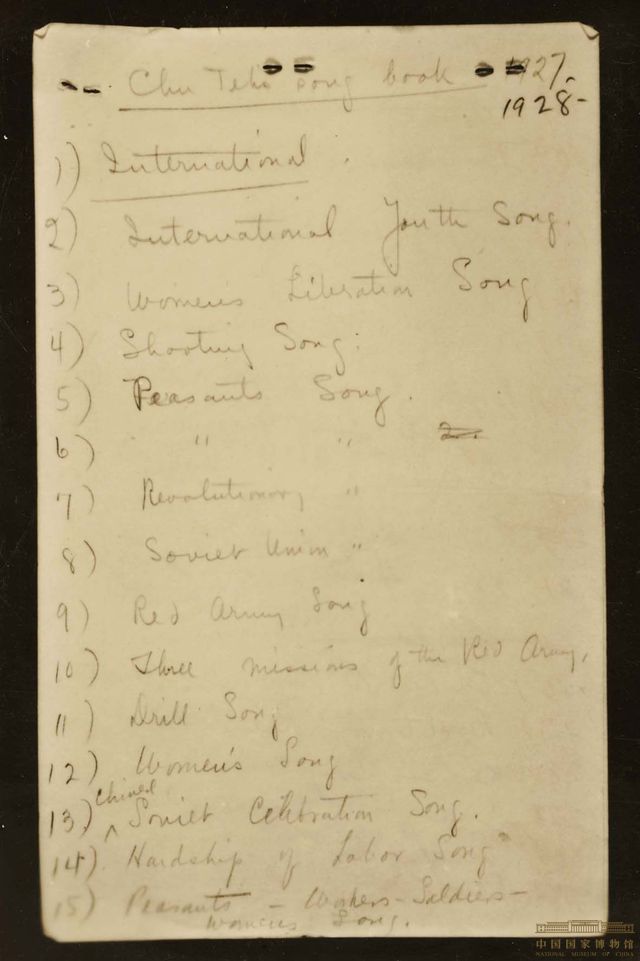 Chu Teh's song book 1927,
1928-
1) International.
2) International Youth Song.
3) Women's Liberation Song
4) Shooting Song.
5) Peasants Song.
6) " "
7) Revolutionary "
8) Soviet Union "
9) Red Army Song
10) Three missions of the Red Army,
11) Drill Song
12) Women's Song
Chinese
13) Soviet Celebration Song.
14) Hardship of Labor Song
15) Peasants - Workers - Soldiers -
Women's Song.
中国国家博物馆
NATIONAL MUSEUM OF CHINA